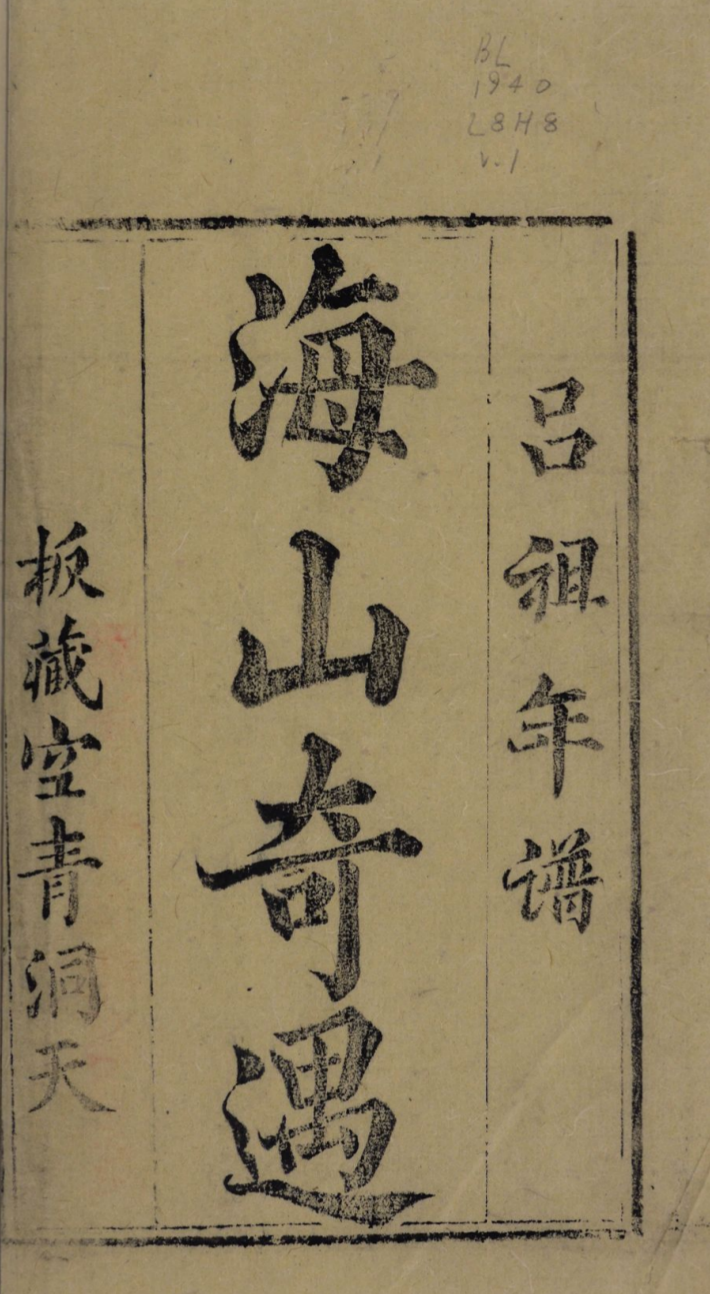 BL
1940
L8H8
v.1
呂祖年譜
海山奇遇
板藏空青洞天